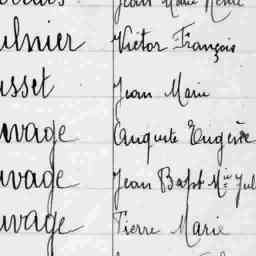 Jean Marie René
ulnier Victor François
usset Jean Marie
uvage Auguste Eugène
uvage Jean Bapt Mie Jul
uvage Pierre Marie